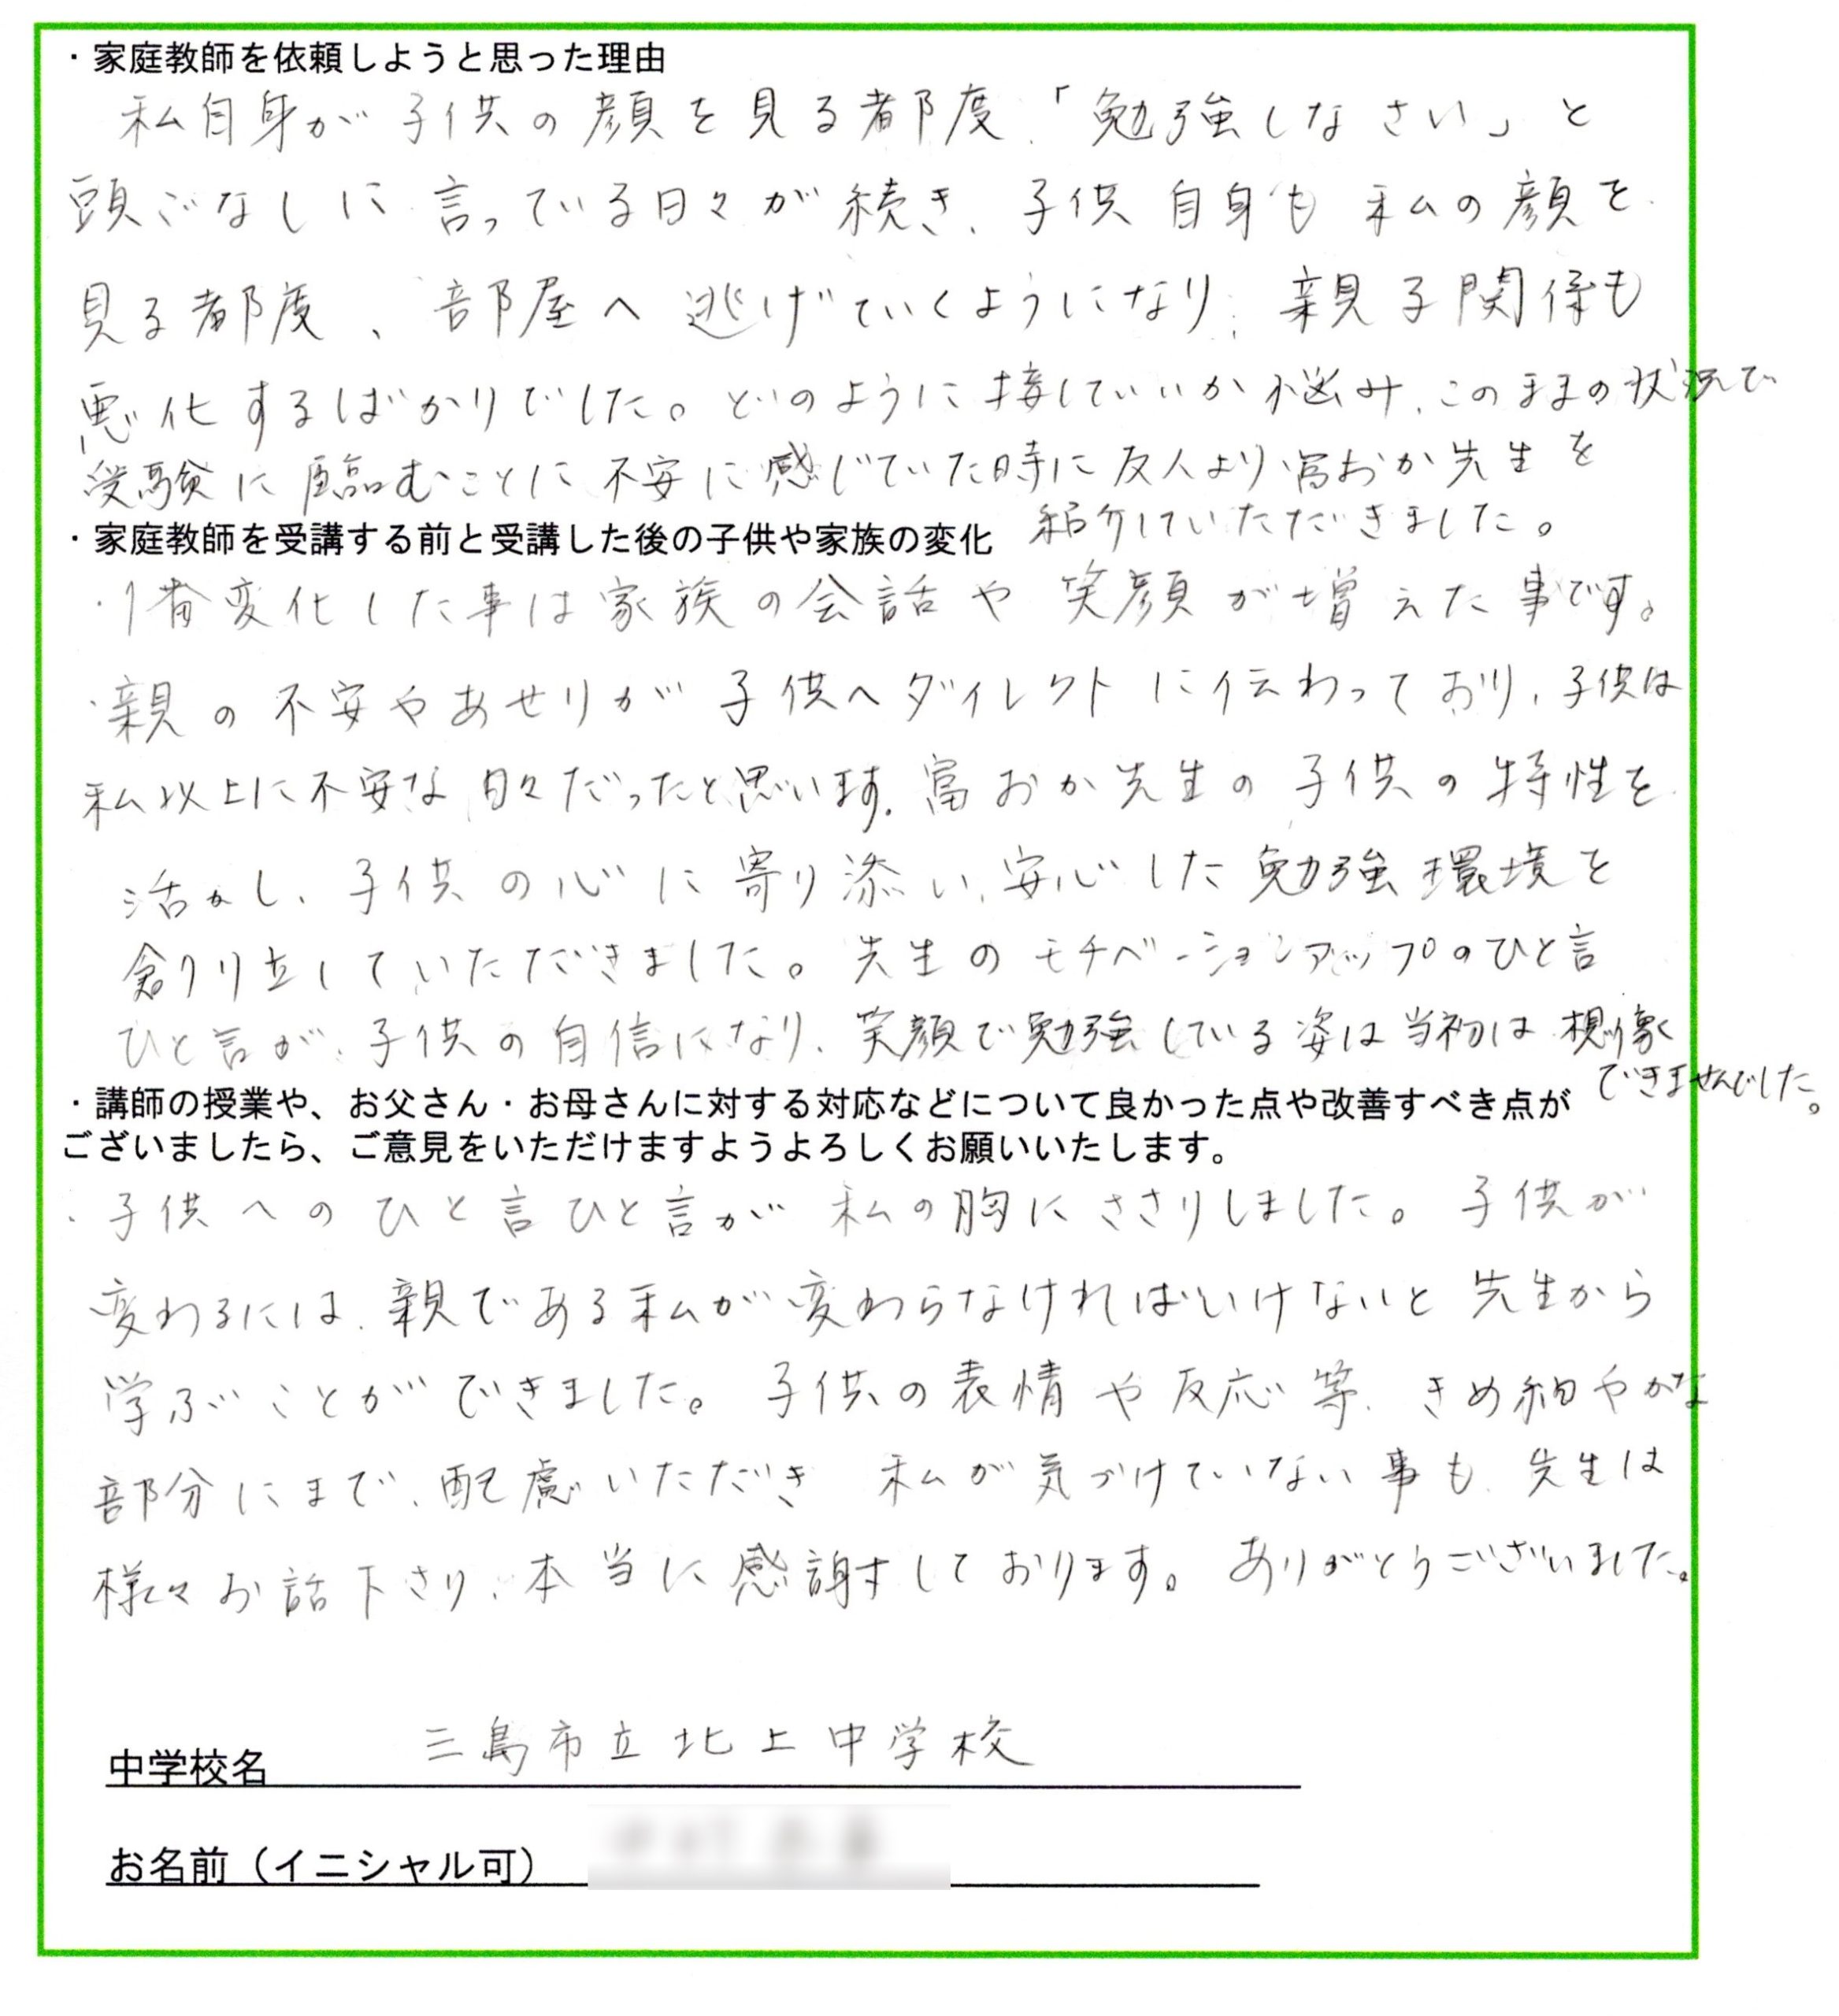 ・家庭教師を依頼しようと思った理由
私自身が子供の顔を見る都度、「勉強しなさい」と
頭ごなしに言っている日々が続き、子供自身も私の顔を
見る都度、部屋へ逃げていくようになり、親子関係も
悪化するばかりでした。どのように接していいか悩み、このままの状況で
受験に臨むことに不安に感じていた時に友人より冨おか先生を
紹介していただきました。
・家庭教師を受講する前と受講した後の子供や家族の変化
・1番変化した事は家族の会話や笑顔が増えた事です。
・親の不安やあせりが子供へダイレクトに伝わっており、子供は
私以上に不安な日々だったと思います。冨おか先生の子供の特性を
活かし、子供の心に寄り添い、安心した勉強環境を
創り立していただきました。先生のモチベーションアップのひと言
ひと言が、子供の自信になり、笑顔で勉強している姿は当初は想像
できませんでした。
・講師の授業や、お父さん・お母さんに対する対応などについて良かった点や改善すべき点が
ございましたら、ご意見をいただけますようよろしくお願いいたします。
・子供へのひと言ひと言が私の胸にささりしました。子供が
変わるには、親である私が変わらなければいけないと先生から
学ぶことができました。子供の表情や反応等、きめ細やかな
部分にまで、配慮いただき 私が気づけていない事も、先生は
様々お話下さり、本当に感謝しております。ありがとうございました。
三島市立北上中学校
中学校名
お名前（イニシャル可）